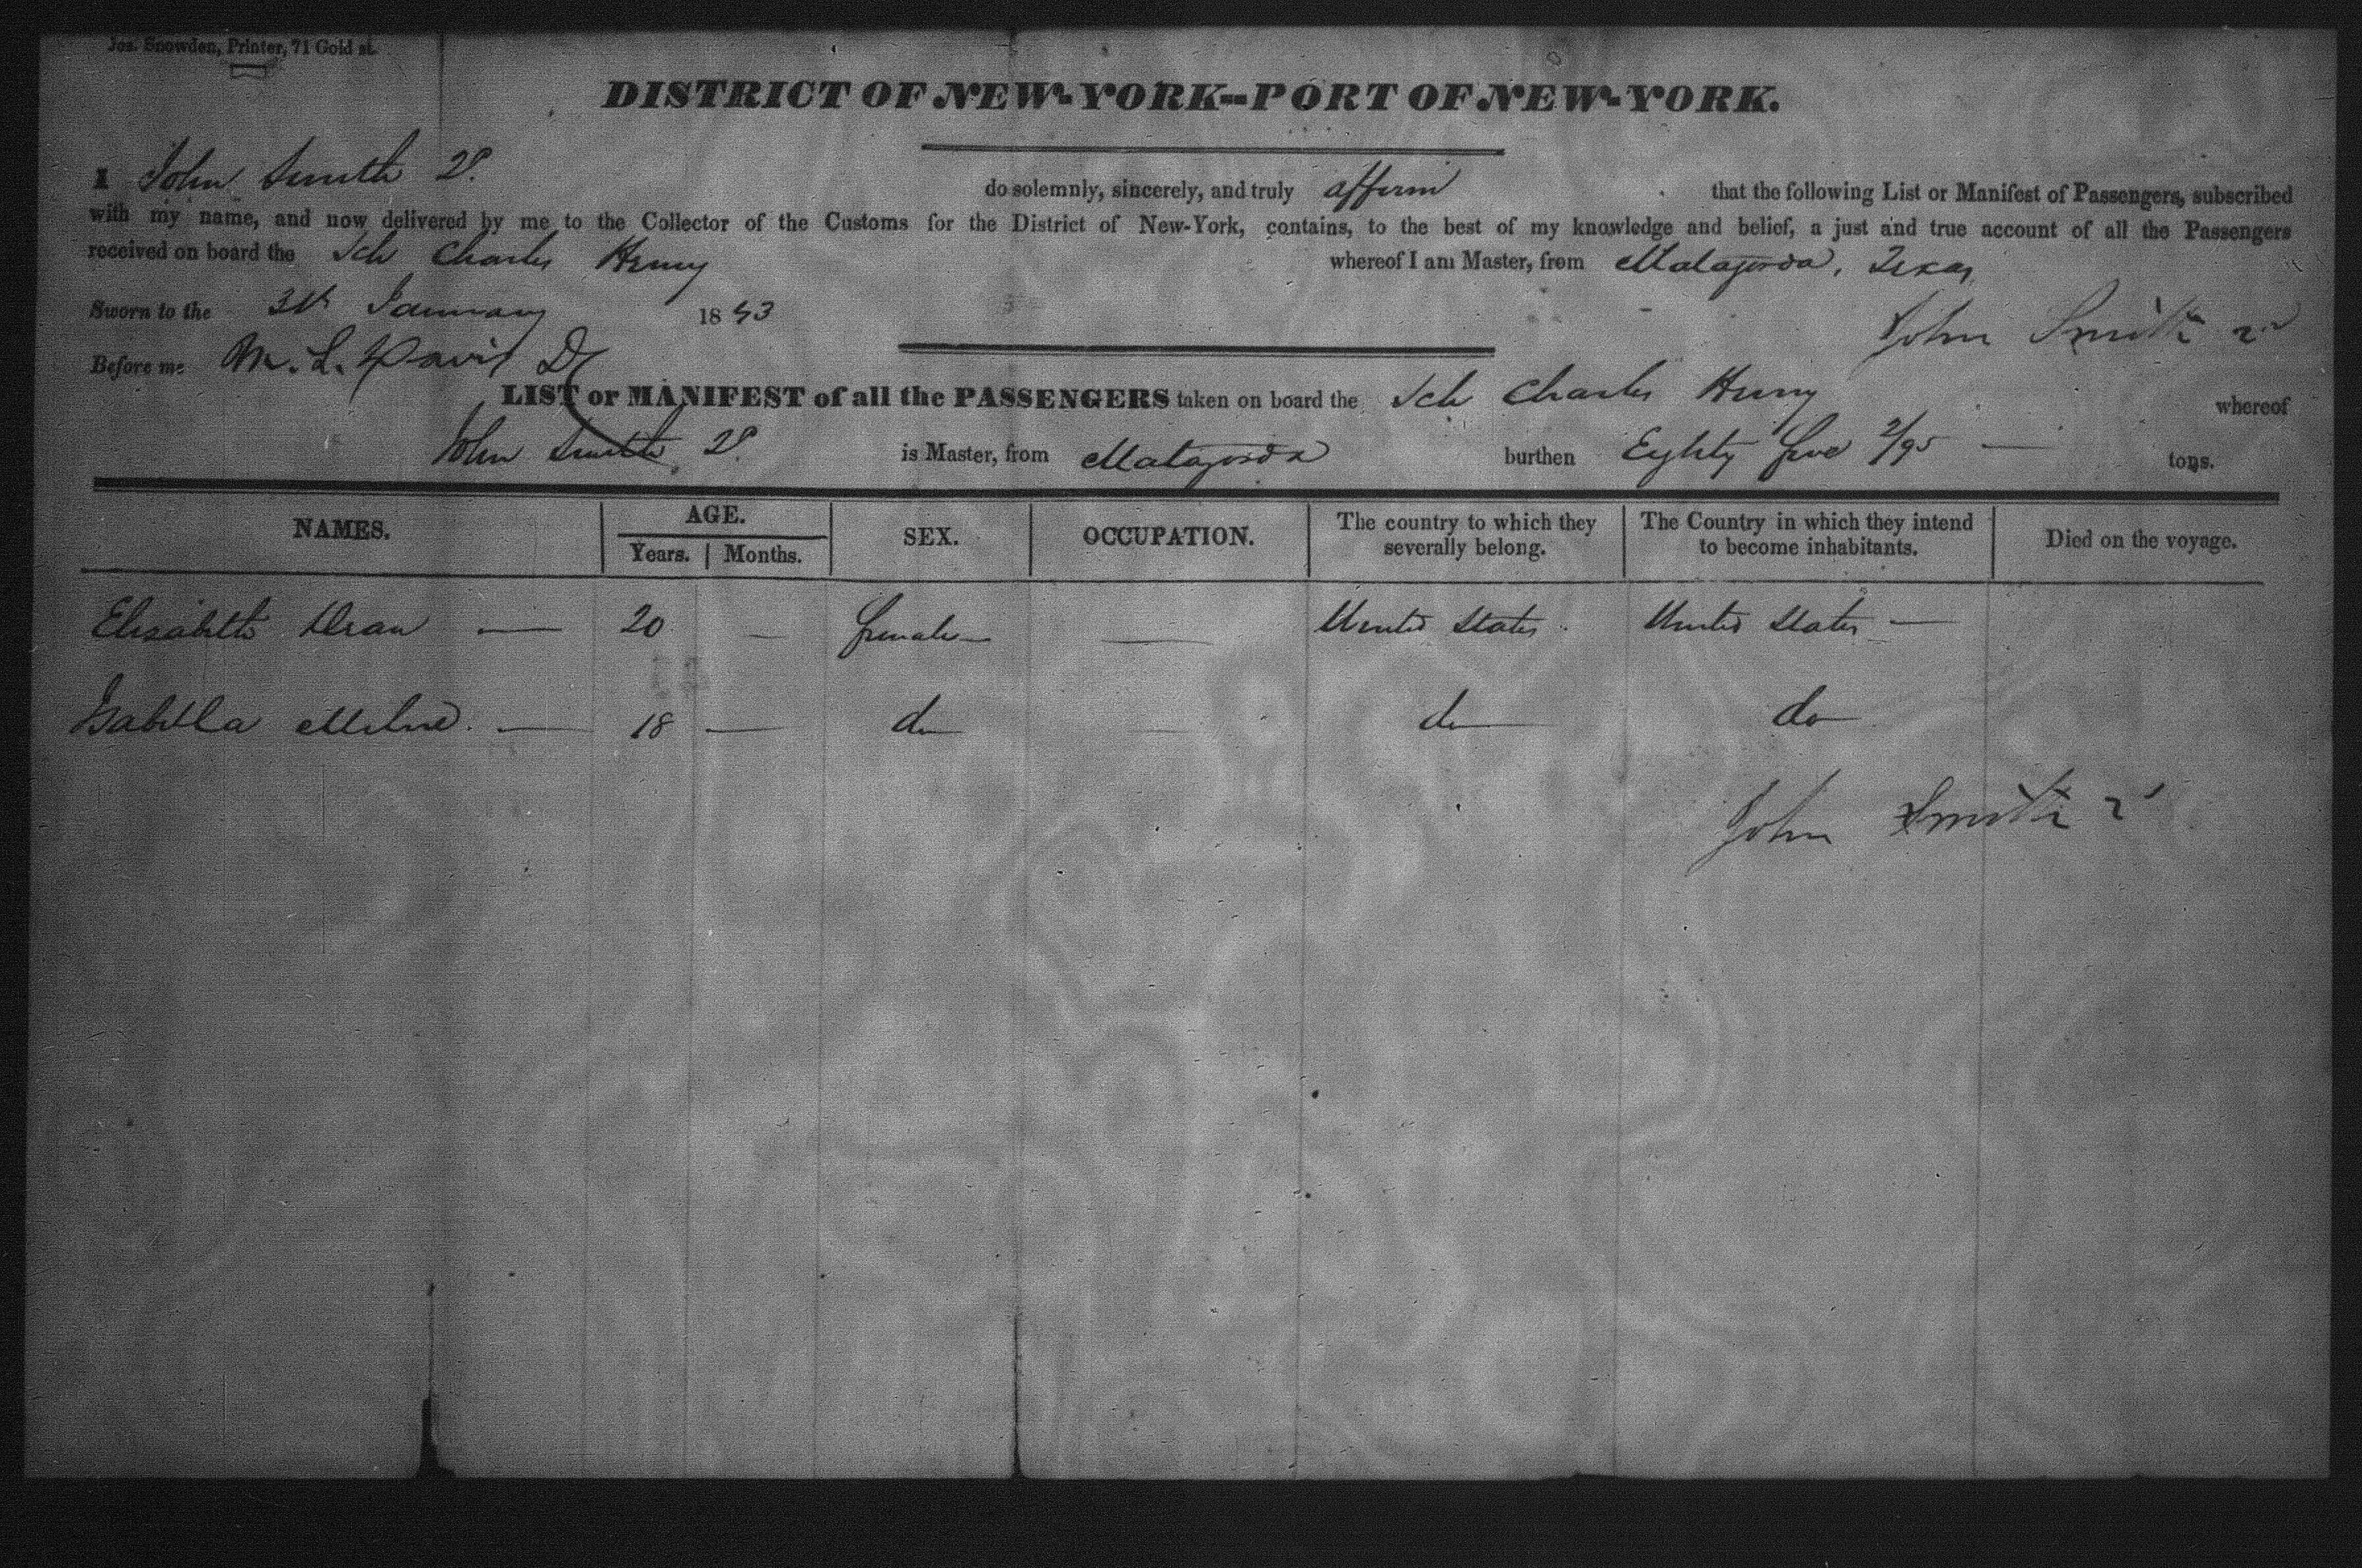 Jos. Snowden, Printer, 71 Gold st.
DISTRICT OF NEW-YORK--PORT OF NEW-YORK.
I John Smith 2d. do solemnly, sincerely, and truly affirm that the following List or Manifest of Passengers, subscribed
with my name, and now delivered by me to the Collector of the Customs for the District of New-York, contains, to the best of my knowledge and belief, a just and true account of all the Passengers
received on board the Sch Charles Henry whereof I am Master, from Matagorda, Texas
Sworn to the January 1843
John Smith 2d
Before me M. L. Davis
LIST or MANIFEST of all the PASSENGERS taken on board the Sch Charles Henry whereof
John Smith 2d. is Master, from Matagorda burthen Eighty five 2/95 — tons.
NAMES. AGE. Years. Months. SEX. OCCUPATION. The country to which they severally belong. The Country in which they intend to become inhabitants. Died on the voyage.
Elizabeth — 20 — female — United States. United States —
Isabella Milne. — 18 — do — do do
John Smith 2d